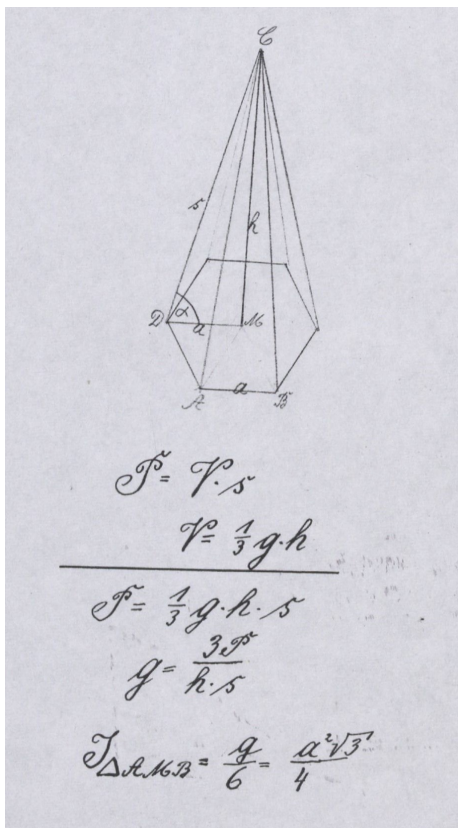 C
s
h
D α a M
A a B
P = V · s
V = 1/3 g · h
P = 1/3 g · h · s
g = 3P / h · s
J△AMB = g/6 = a²√3/4